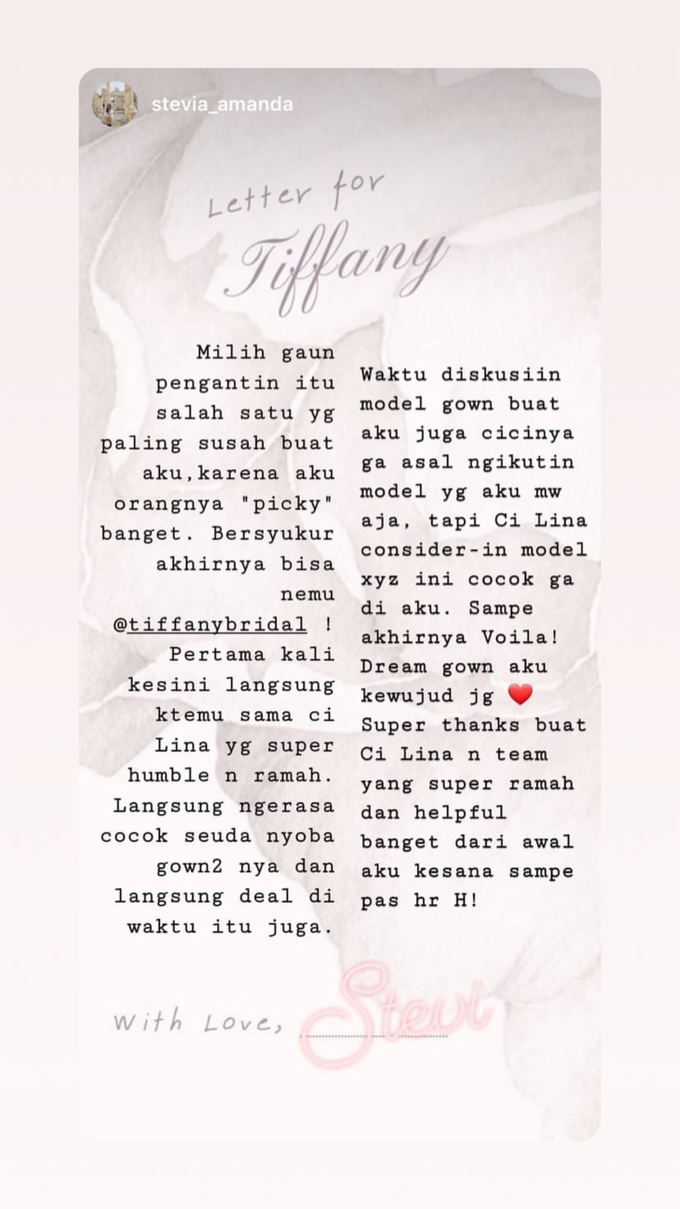 stevia_amanda
Letter for
Tiffany
Milih gaun
pengantin itu
salah satu yg
paling susah buat
aku,karena aku
orangnya "picky"
banget. Bersyukur
akhirnya bisa
nemu
@tiffanybridal !
Pertama kali
kesini langsung
ktemu sama ci
Lina yg super
humble n ramah.
Langsung ngerasa
cocok seuda nyoba
gown2 nya dan
langsung deal di
waktu itu juga.
Waktu diskusiin
model gown buat
aku juga cicinya
ga asal ngikutin
model yg aku mw
aja, tapi Ci Lina
consider-in model
xyz ini cocok ga
di aku. Sampe
akhirnya Voila!
Dream gown aku
kewujud jg ❤️
Super thanks buat
Ci Lina n team
yang super ramah
dan helpful
banget dari awal
aku kesana sampe
pas hr H!
With Love, Stevi